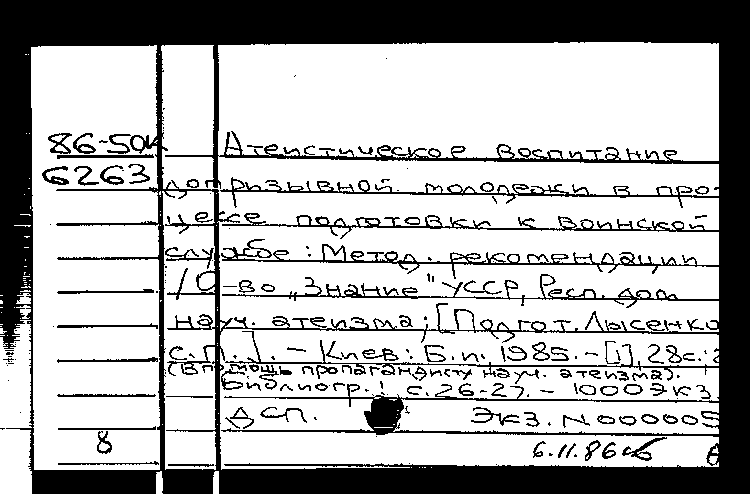 86-50к Атеистическое воспитание
6263 допризывной молодежи в про-
цессе подготовки к воинской
службе : Метод. рекомендации
/ О-во „Знание" УССР, Респ. дом
науч. атеизма; [Подгот. Лысенко
С.П.]. - Киев : Б.и. 1985. - [1], 28с.;
(В помощь пропагандисту науч. атеизма).
Библиогр.: с. 26-27. - 1000 экз
ДСП. Экз. N 000005
8 6.11.86